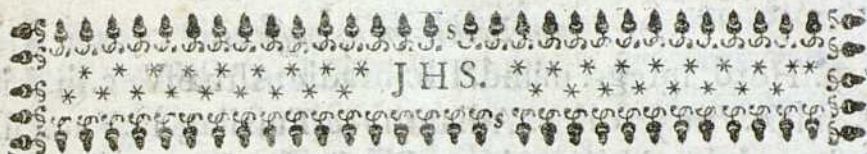 J H S.